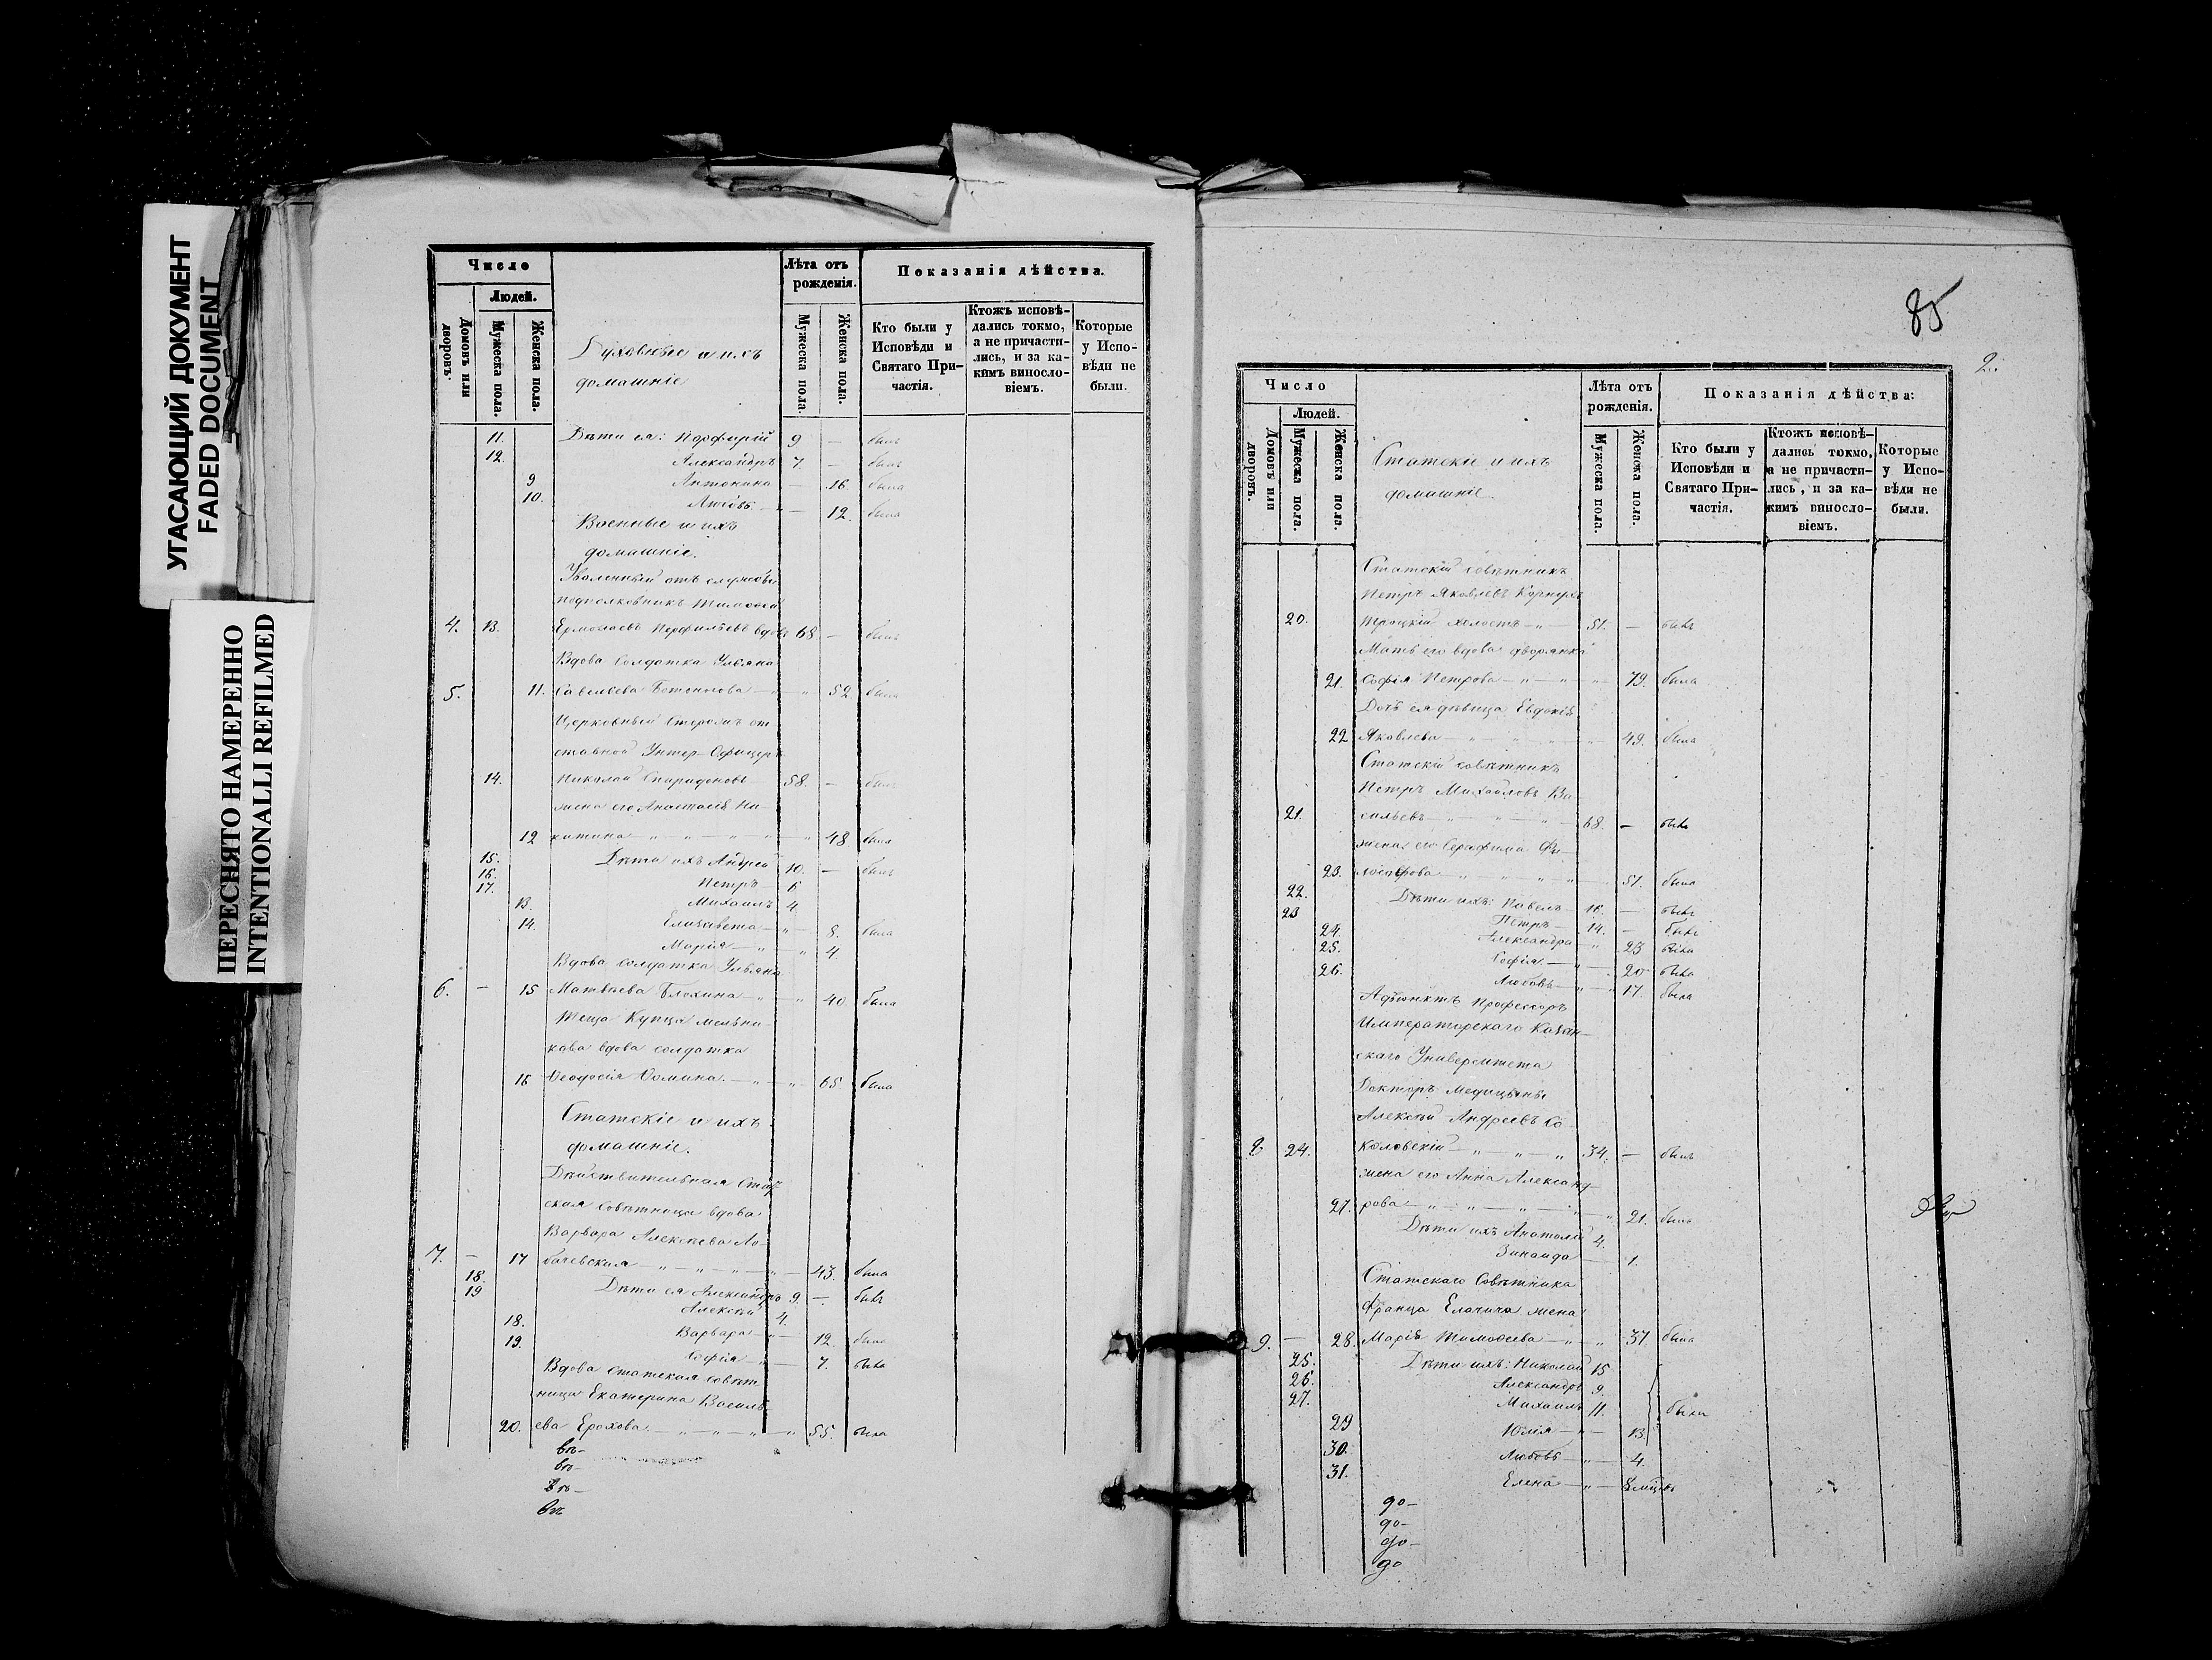 УГАСАЮЩИЙ ДОКУМЕНТ
FADED DOCUMENT
ПЕРЕСНЯТО НАМЕРЕННО
INTENTIONALLI REFILMED
Число
Людей.
Домовъ или дворовъ.
Мужеска пола.
Женска пола.
Духовные и ихъ
домашніе
Лѣта отъ
рожденія.
Мужеска пола.
Женска пола.
Показанія дѣйства.
Кто были у
Исповѣди и
Святаго При-
частія.
Ктожъ исповѣ-
дались токмо,
а не причасти-
лись, и за ка-
кимъ винсло-
віемъ.
Которые
у Испо-
вѣди не
были.
11. Дѣти ея: Порфирій 9 — былъ
12. Александръ 7. — былъ
9 Антонина — 16. была
10. Любовь — 12. была
Военные и ихъ
домашніе.
Уволенный отъ службы
подполковникъ Тимофей
4. 13. Ермолаевъ Перфильевъ вдовъ 68 — былъ
Вдова солдатка Ульяна
5. 11. Савельева — " 52. была
Церковный Сторожъ от
ставной Унтер-Офицеръ
14. Николай Спиридоновъ 58. — былъ
жена его Анастасія Ни-
12 китина — " — " — " 48 была
15. Дѣти ихъ Андрей 10. — былъ
16. Петръ 6
17. Михаилъ 4.
13. Елизавета — " — 8. была
14. Марія — " — " 4.
Вдова солдатка Ульяна
6. — 15 Матвѣева Блохина — " — " 40 была
Теща Купца Мельни-
кова вдова солдатка
16 Ѳеодосія Ѳомина. — " — " 65 была
Статскіе и ихъ
домашніе.
Дѣйствительная Стат-
ская Совѣтница вдова
Варвара Алексѣева Ло-
7. — 17 бачевская — " — " — " 43. была
18. Дѣти ея Александръ 9. — былъ
19 Алексѣй 4.
18. Варвара — " — 12. была
19. Софія — " — 7. была
Вдова статская совѣт-
ница Екатерина Василь-
20. ева Ерохова. — " — " — " 55. была
въ-
въ-
въ-
въ
85
2.
Число
Людей.
Домовъ или дворовъ.
Мужеска пола.
Женска пола.
Статскіе и ихъ
домашніе
Лѣта отъ
рожденія.
Мужеска пола.
Женска пола.
Показанія дѣйства:
Кто были у
Исповѣди и
Святаго При-
частія.
Ктожъ исповѣ-
дались токмо,
а не причасти-
лись, и за ка-
кимъ винсло-
віемъ.
Которые
у Испо-
вѣди не
были.
Статскій совѣтникъ
Петръ Яковлевъ
20. холостъ — " 51. — былъ
Мать его вдова дворянка
21. Софія Петрова — " — " 79. была
Дочь ея дѣвица Евдокія
22 Яковлева — " — " — " 49. была
Статскій совѣтникъ
Петръ Михайловъ Ва-
21. сильевъ — " — " — " 68. — былъ
жена его Серафима Фи-
23. лософова — " — " — " 51. была
22. Дѣти ихъ: Павелъ 16. — былъ
23 Петръ 14. — былъ
24. Александра " 23 была
25. Софія — " — 20 была
26. Любовь — " — 17. была
Адъюнктъ Профессоръ
Императорскаго Казан-
скаго Университета
Докторъ Медицины
Алексѣй Андреевъ Со-
8 24. коловскій — " — " — " 34. — былъ
жена его Анна Александ-
27. рова — " — " — " 21. была
Дѣти ихъ Анатолій 4.
Зинаида — 1.
Статскаго Совѣтника
Франца Елачича жена
9. — 28. Марія Тимофеева — " — " 37 была
25. Дѣти ихъ: Николай 15
26. Александръ 9.
27. Михаилъ 11. были
29 Юлія — " — 13.
30. Любовь — " — 4.
31. Елена — " — 8 мѣсяц.
до-
до-
до-
до